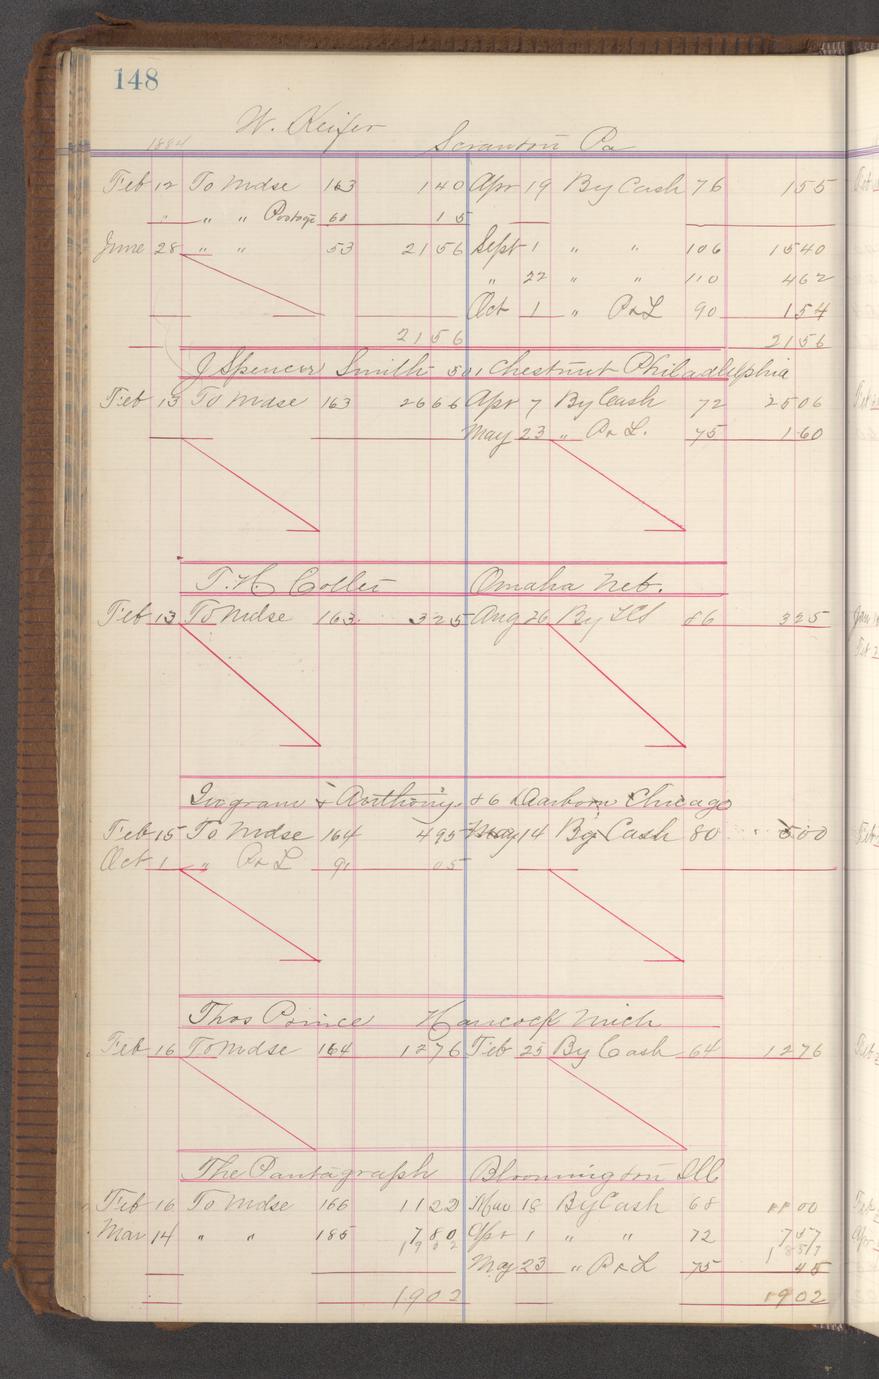 148
W. Keifer Scranton Pa
1884
Feb 12 To Mdse 163 1 40 Apr 19 By Cash 76 1 55
" " " Postage 60 15
June 28 " " 53 21 56 Sept 1 " " 106 15 40
" 22 " " 110 4 62
Oct 1 " P&L 90 1 54
21 56 21 56
J Spencer Smith 501 Chestnut Philadelphia
Feb 13 To Mdse 163 26 66 Apr 7 By Cash 72 25 06
May 23 " P&L. 75 1 60
T. H. Coller Omaha Neb.
Feb 13 To Mdse 163 3 25 Aug 26 By 86 3 25
Ingram & Anthony. 86 Dearborn Chicago
Feb 15 To Mdse 164 4 95 May 14 By Cash 80 5 00
Oct 1 " P&L 91 05
Thos Prince Hancock Mich
Feb 16 To Mdse 164 12 76 Feb 25 By Cash 64 12 76
The Pantagraph Bloomington Ill
Feb 16 To Mdse 166 11 22 Mar 18 By Cash 68 11 00
Mar 14 " " 185 7 80 Apr 1 " " 72 7 57
19 02 18 57
May 23 " P&L 75 45
19 02 19 02